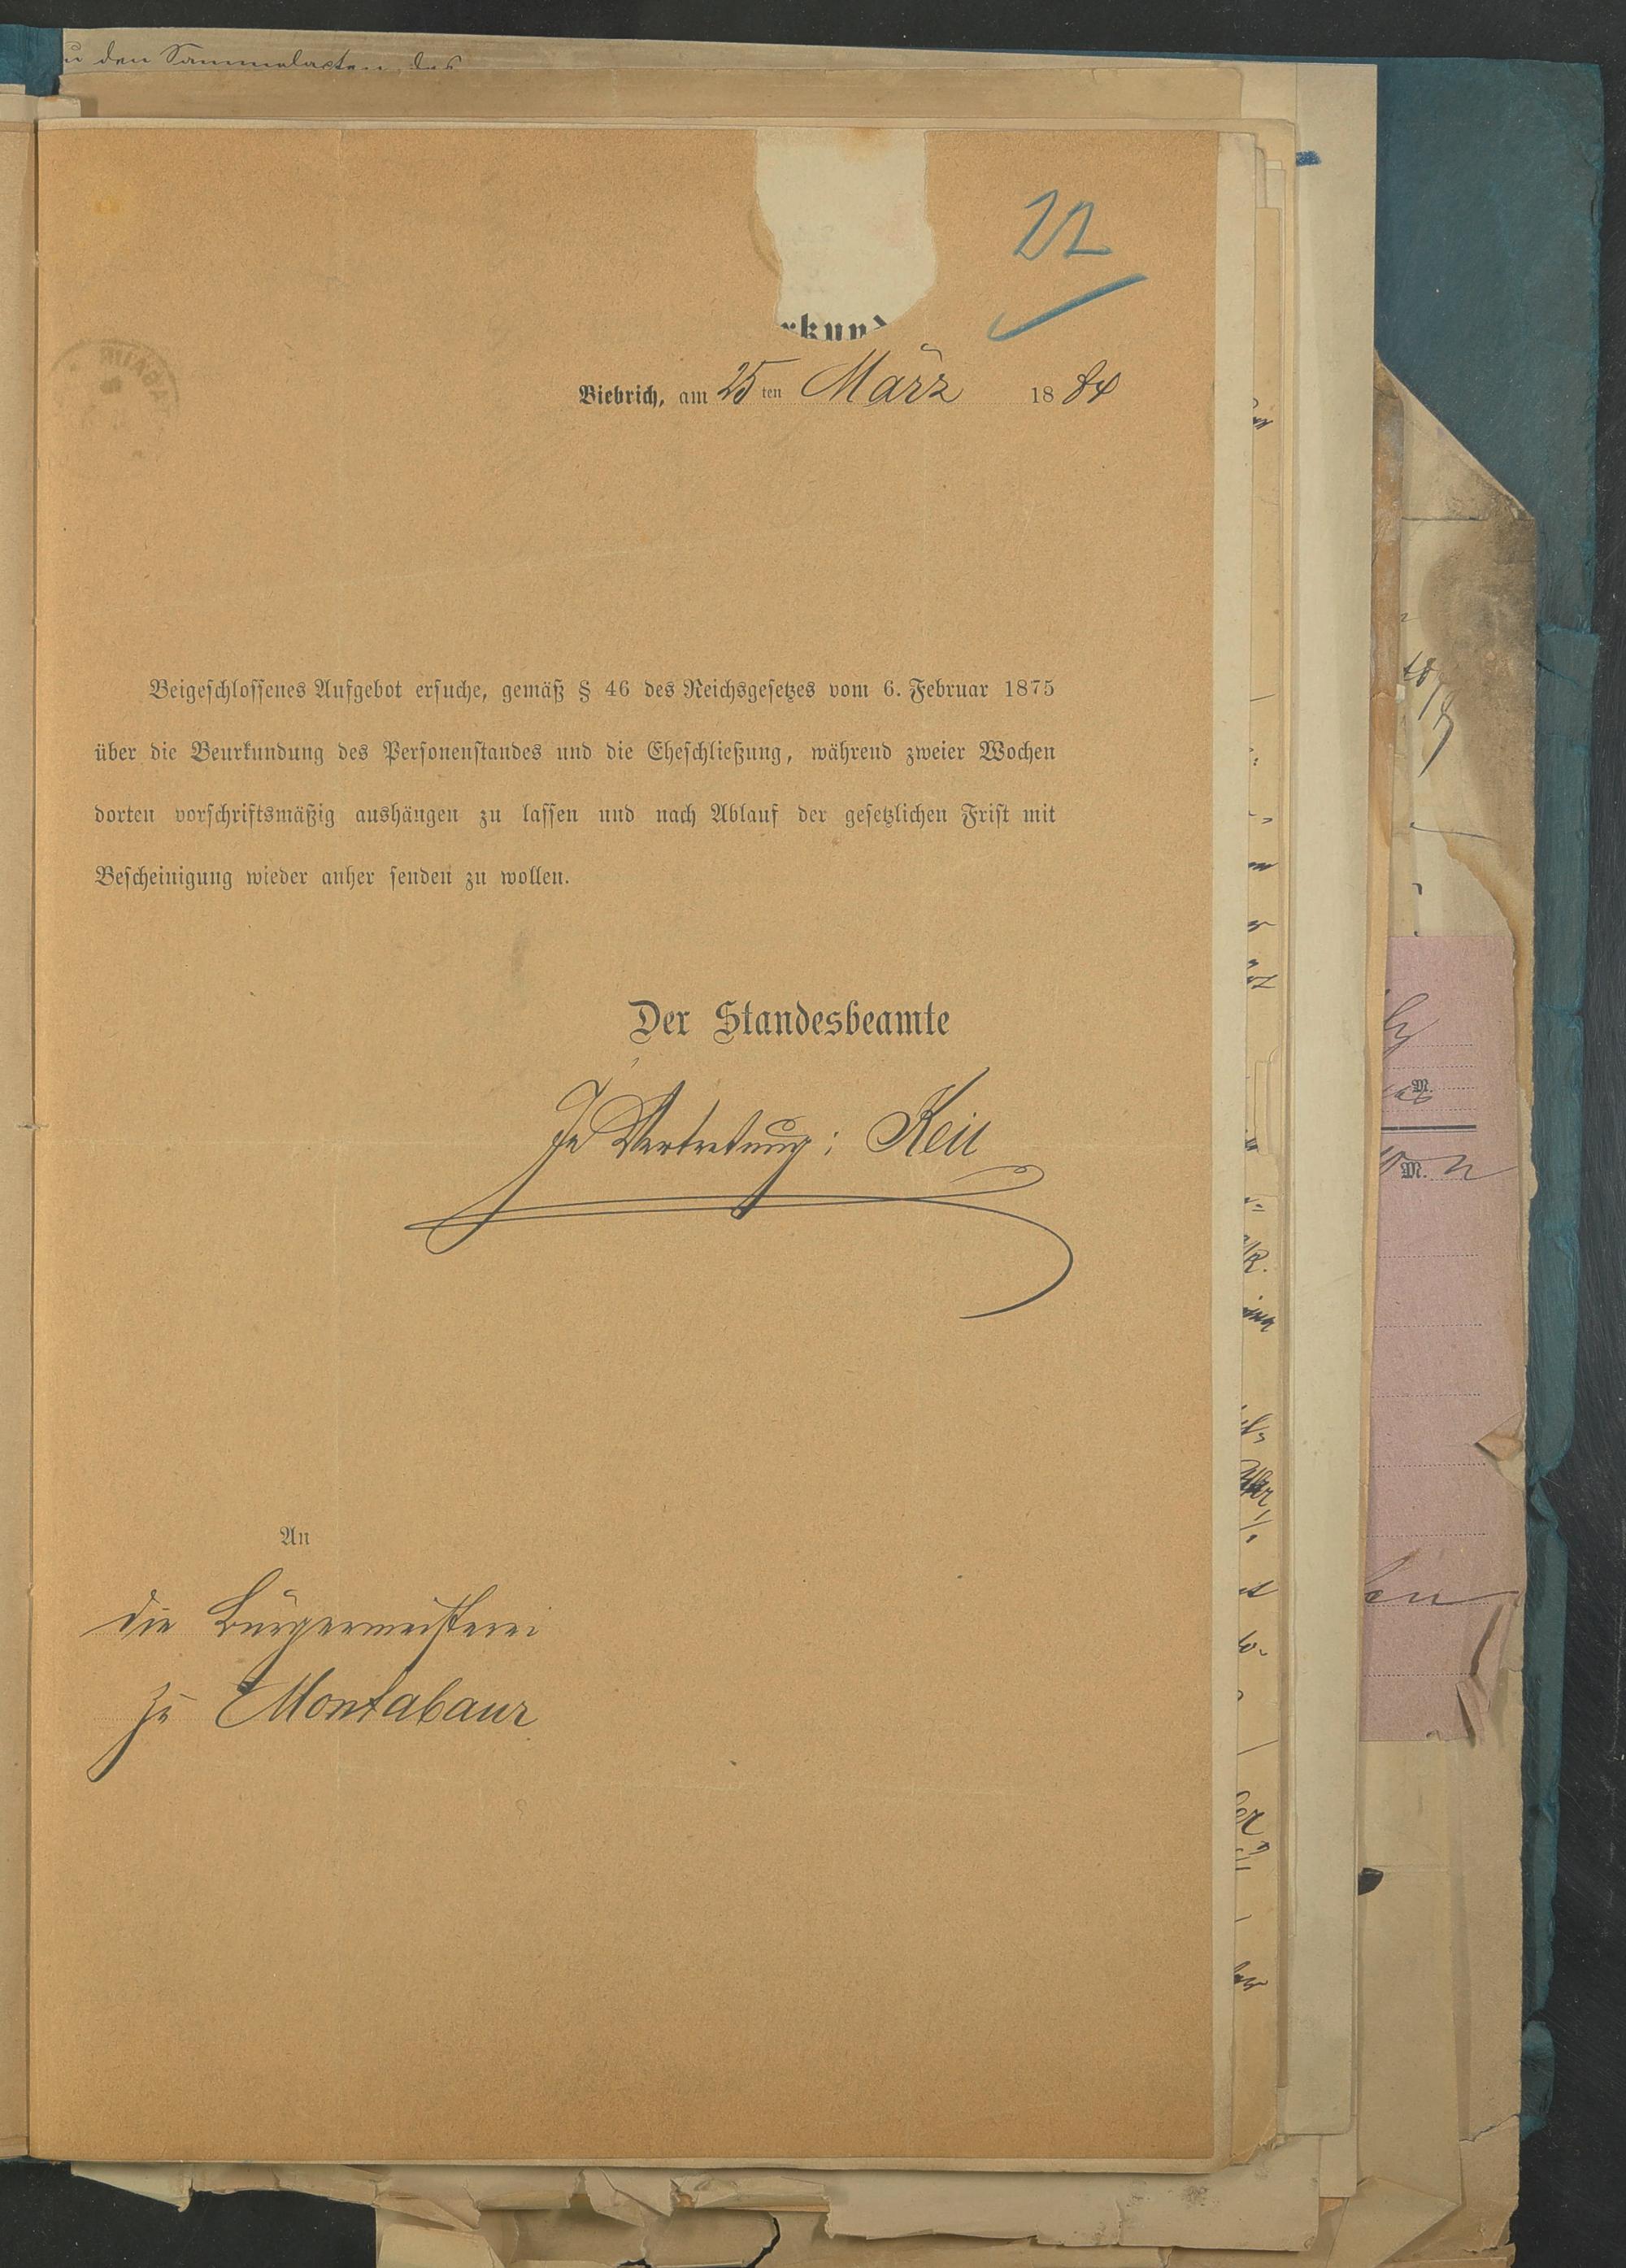 den Sammelacten des
22
Biebrich, am 25 ten März 18 84
Beigeschlossenes Aufgebot ersuche, gemäß § 46 des Reichsgesetzes vom 6. Februar 1875
über die Beurkundung des Personenstandes und die Eheschließung, während zweier Wochen
dorten vorschriftsmäßig aushängen zu lassen und nach Ablauf der gesetzlichen Frist mit
Bescheinigung wieder anher senden zu wollen.
Der Standesbeamte
In Vertretung:
An
die Bürgermeisterei
zu Montabaur
M.
M.